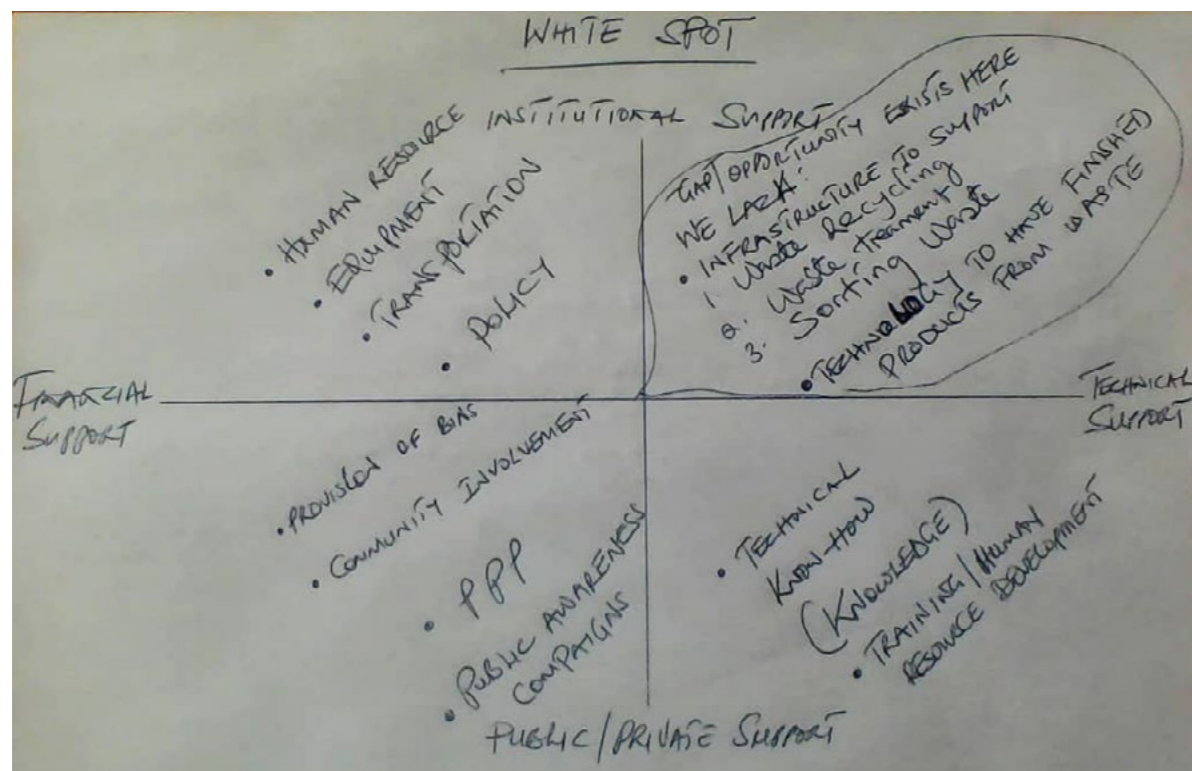 WHITE SPOT
INSTITUTIONAL SUPPORT
• HUMAN RESOURCE
• EQUIPMENT
• TRANSPORTATION
• POLICY
GAP/OPPORTUNITY EXISTS HERE
WE LACK:
• INFRASTRUCTURE TO SUPPORT
1. Waste Recycling
2. Waste Treament
3. Sorting Waste
• TECHNOLOGY TO HAVE FINISHED
PRODUCTS FROM WASTE
FINANCIAL
SUPPORT
TECHNICAL
SUPPORT
• PROVISION OF BINS
• COMMUNITY INVOLVEMENT
• PPP
• PUBLIC AWARENESS
COMPAIGNS
• TECHNICAL
KNOW-HOW
(KNOWLEDGE)
• TRAINING/HUMAN
RESOURCE DEVELOPMENT
PUBLIC/PRIVATE SUPPORT